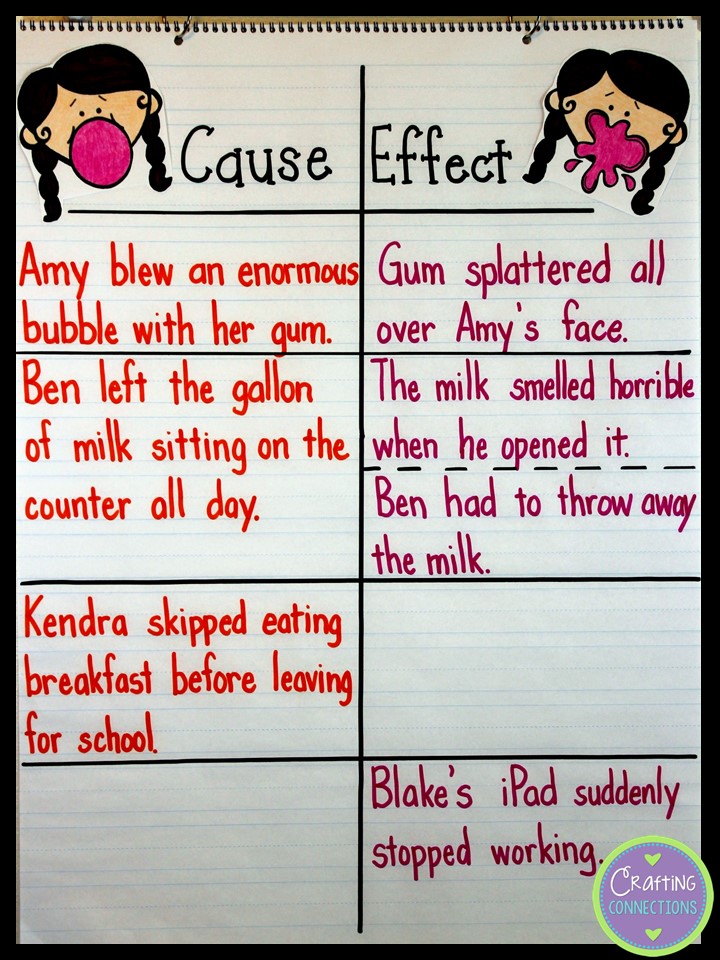 Cause
Effect
Amy blew an enormous
bubble with her gum.
Gum splattered all
over Amy's face.
Ben left the gallon
of milk sitting on the
counter all day.
The milk smelled horrible
when he opened it.
Ben had to throw away
the milk.
Kendra skipped eating
breakfast before leaving
for school.
Blake's iPad suddenly
stopped working.
Crafting
CONNECTIONS